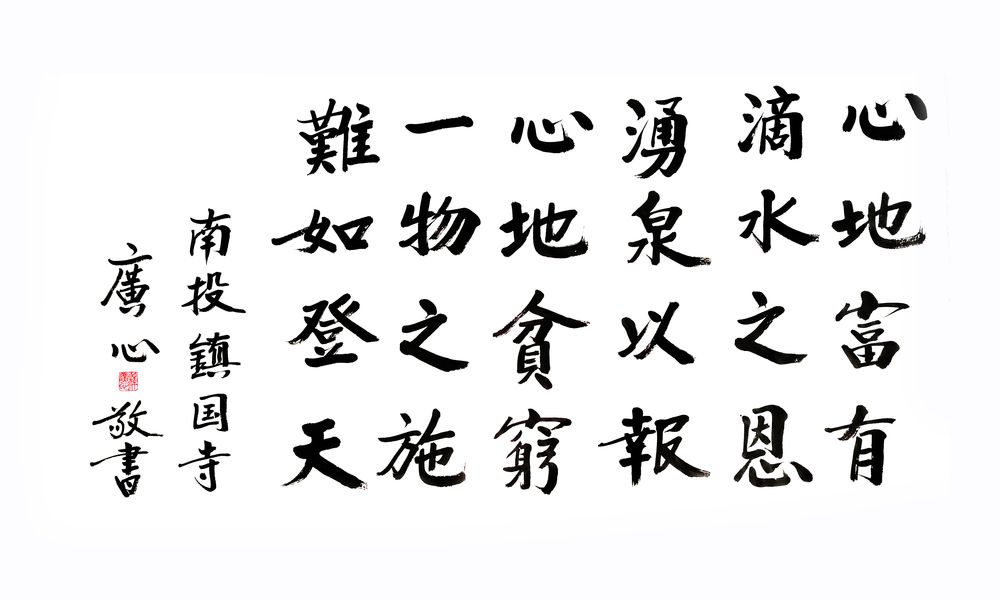 心地富有
滴水之恩
湧泉以報
心地貧窮
一物之施
難如登天
南投鎮国寺
廣心敬書